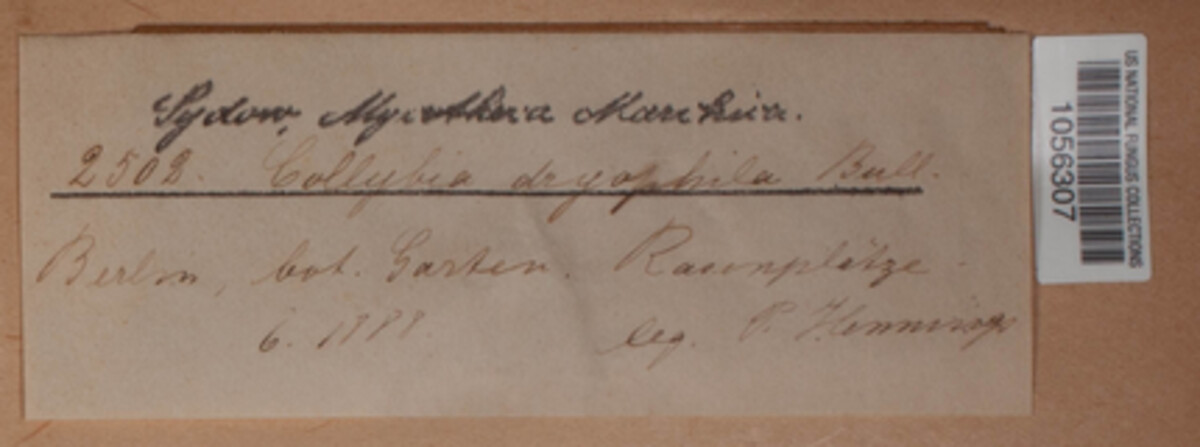 Sydow, Mycotheca Marchica.
2502. Collybia dryophila Bull.
Berlin, bot. Garten. Rasenplätze.
6. 1888. leg. P. Hennings
US NATIONAL FUNGUS COLLECTIONS
1056307